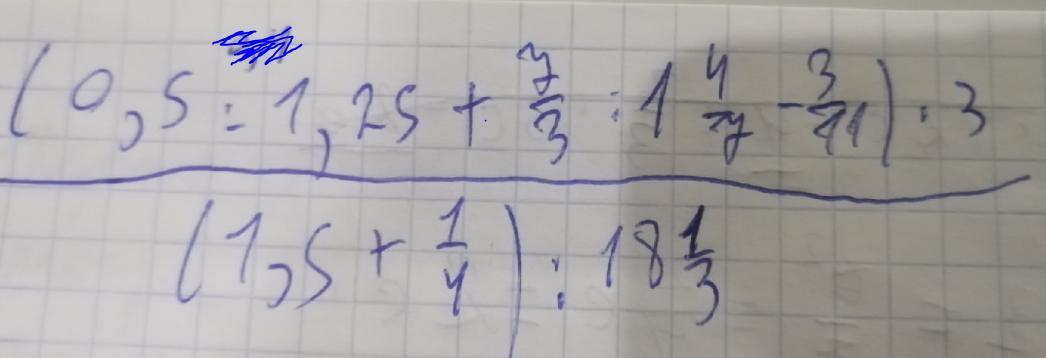 (0,5 : 1,25 + 7/3 : 1 4/7 - 3/11) · 3
(1,5 + 1/4) : 18 1/3